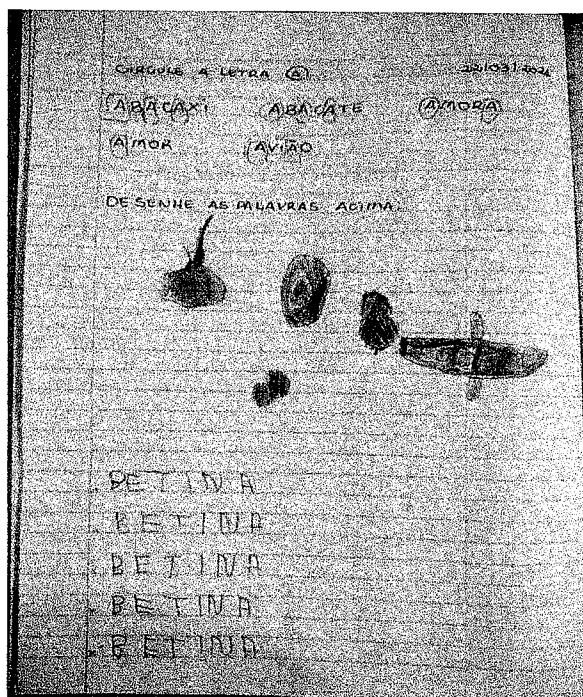 CIRCULE A LETRA A
ABACAXI ABACATE AMORA
AMOR AVIÃO
DESENHE AS PALAVRAS ACIMA:
BETINA
BETINA
BETINA
BETINA
BETINA